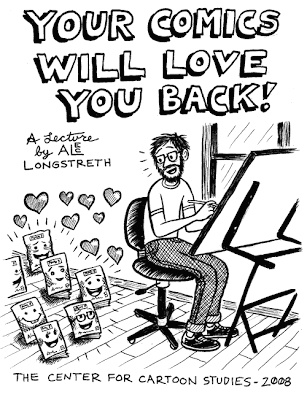 YOUR COMICS
WILL LOVE
YOU BACK!
A Lecture
by ALEC
LONGSTRETH
THE CENTER FOR CARTOON STUDIES - 2008